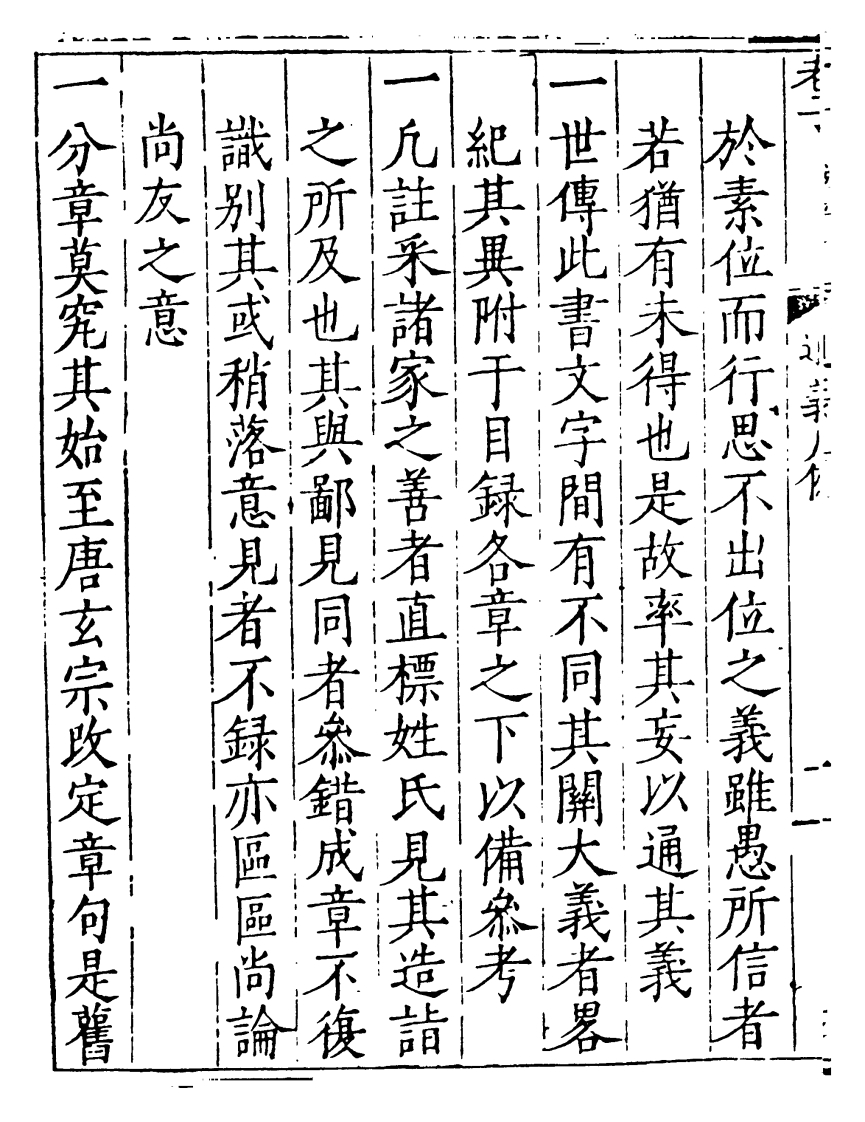 於素位而行思不出位之義雖愚所信者
若猶有未得也是故率其妄以通其義
一世傳此書文字間有不同其關大義者畧
紀其異附于目録各章之下以備叅考
一凡註采諸家之善者直標姓氏見其造詣
之所及也其與鄙見同者叅錯成章不復
識別其或稍落意見者不録亦區區尚論
尚友之意
一分章莫究其始至唐玄宗改定章句是舊